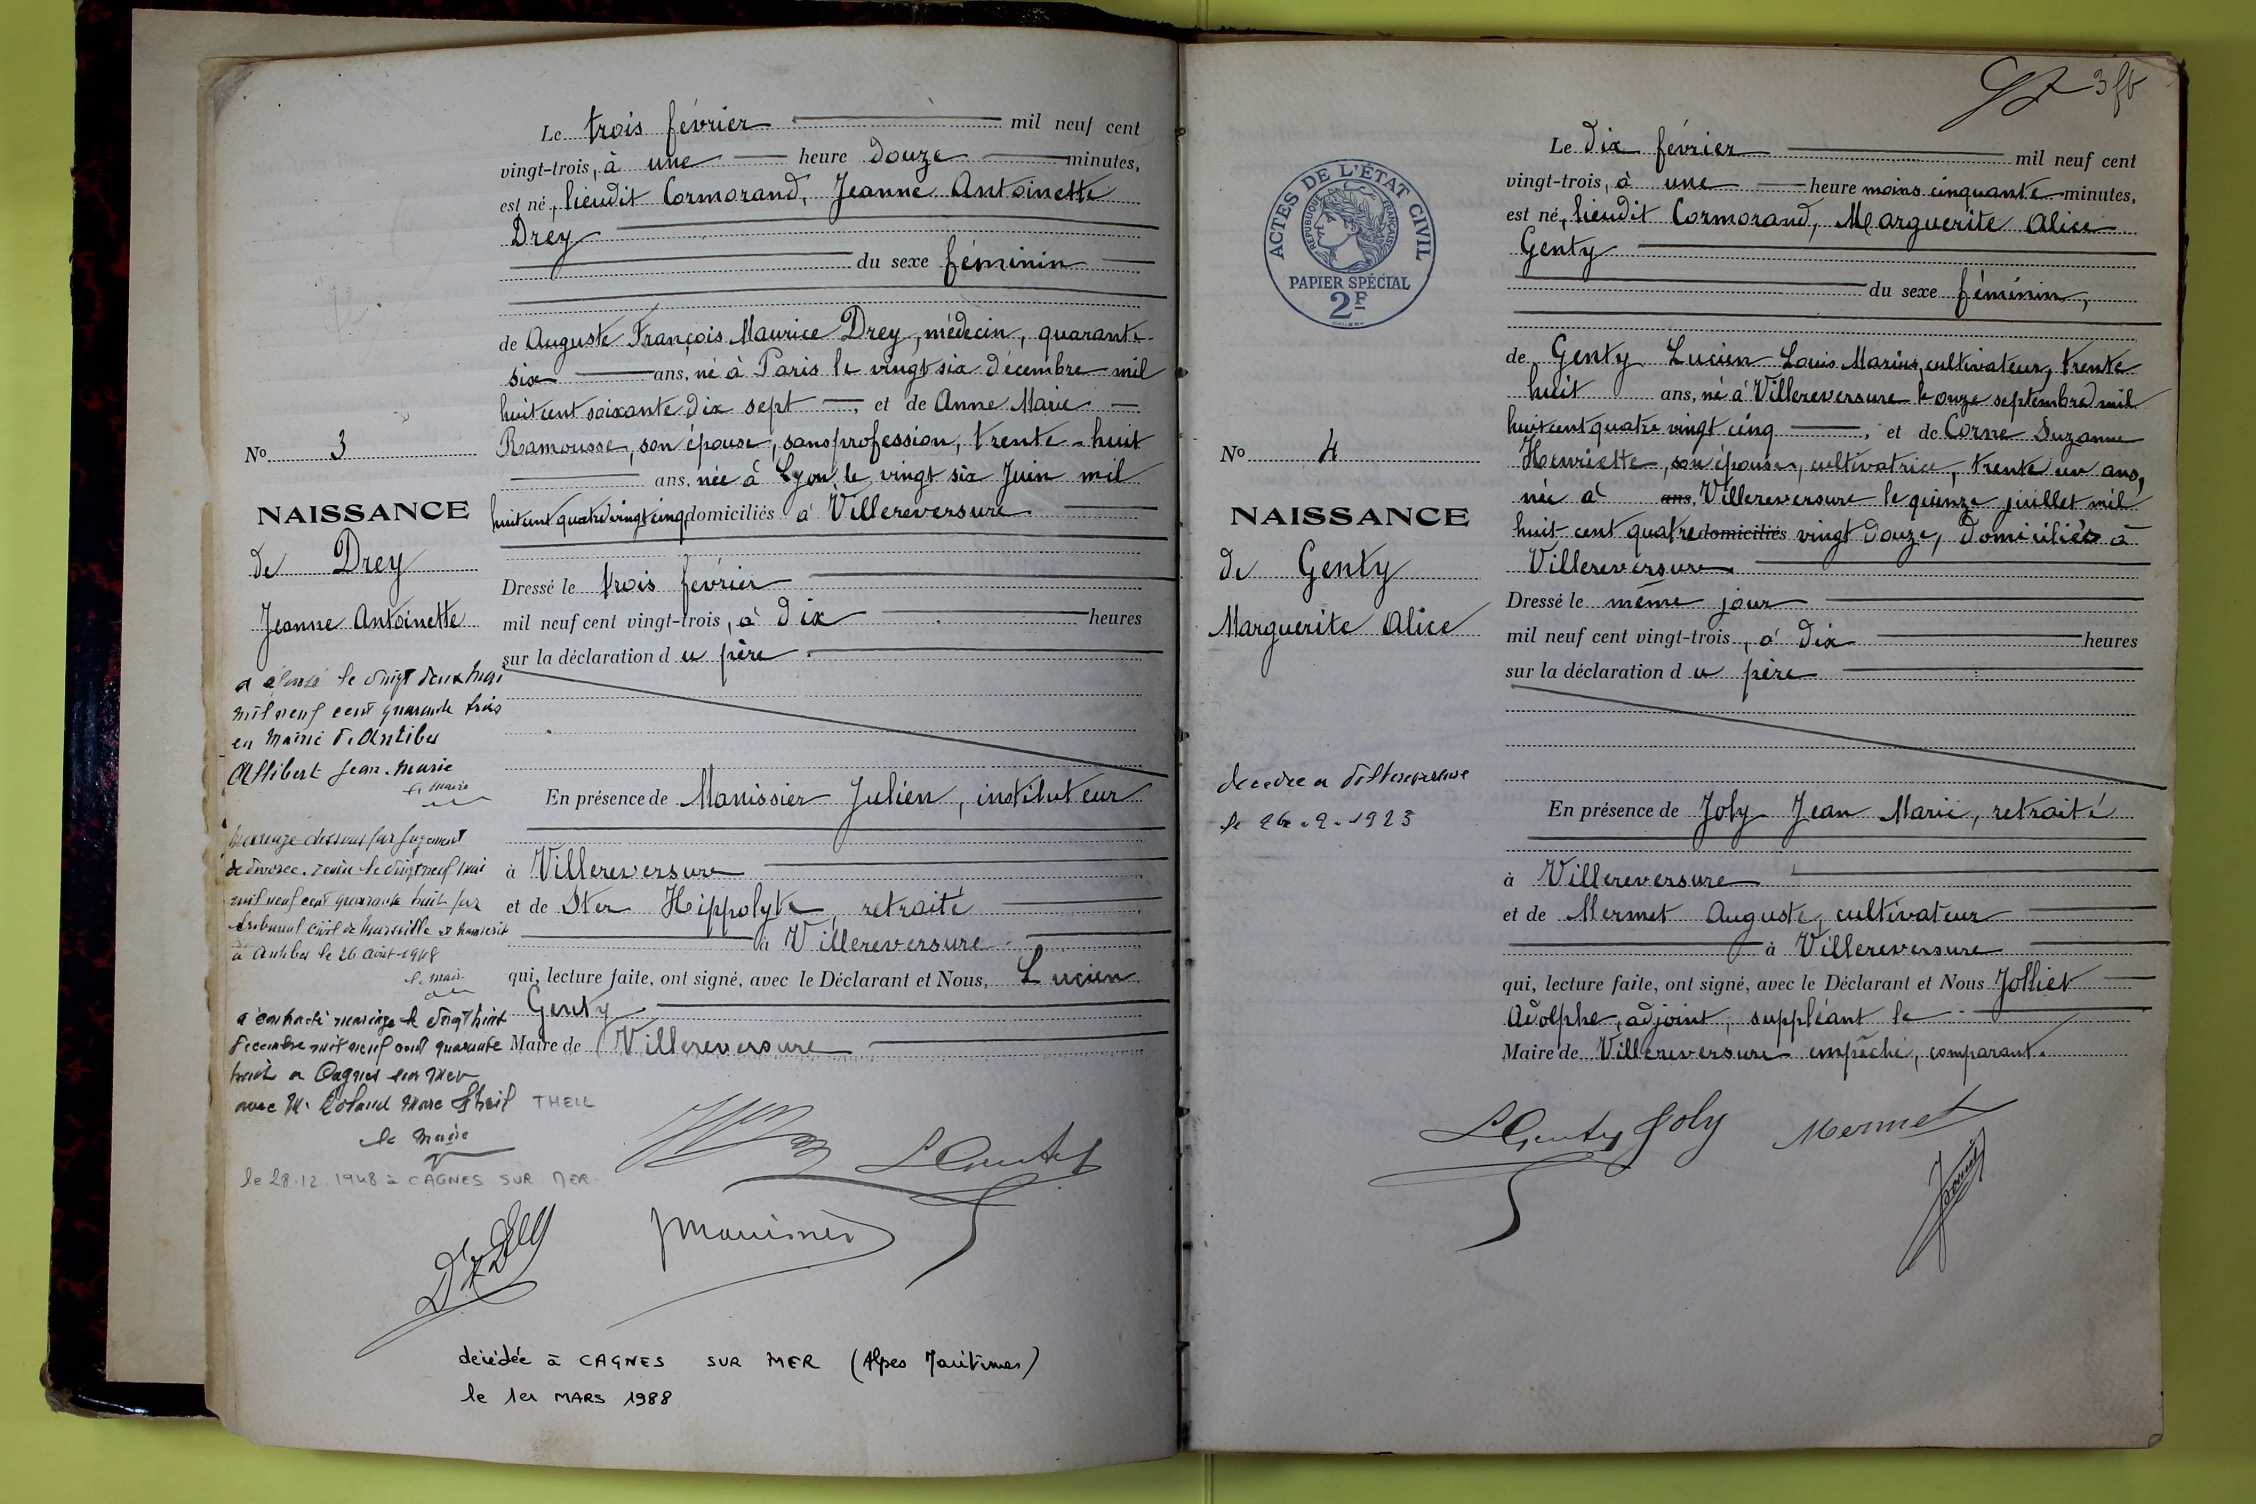 Le trois février mil neuf cent
vingt-trois, à une heure douze minutes,
est né, lieudit Cormorand, Jeanne Antoinette
Drey
du sexe féminin
de Auguste François Maurice Drey, médecin, quarante-
six ans, né à Paris le vingt six décembre mil
huit cent soixante dix sept, et de Anne Marie
Ramousse, son épouse, sans profession, trente-huit
ans, née à Lyon, le vingt six Juin mil
huit cent quatre vingt cinq domiciliés à Villereversure
Dressé le trois février
mil neuf cent vingt-trois, à dix heures
sur la déclaration du père
En présence de Manissier Julien, instituteur
à Villereversure
et de Ster Hippolyte, retraité
à Villereversure
qui, lecture faite, ont signé, avec le Déclarant et Nous, Lucien
Genty
Maire de Villereversure
No 3
NAISSANCE
de Drey
Jeanne Antoinette
a épousé le vingt deux mai
mil neuf cent quarante trois
en Mairie d'Antibes
Allibert Jean-Marie
le Maire
Mariage dissous par jugement
de divorce rendu le vingt neuf mai
mil neuf cent quarante huit par
tribunal civil de Marseille et transcrit
à Antibes le 26 août 1948
le maire
a contracté mariage le vingt huit
décembre mil neuf cent quarante
huit à Cagnes sur Mer
avec M. Roland Marc Theil THEIL
le Maire
le 28.12.1948 à CAGNES SUR MER
Dr Drey
décédée à CAGNES SUR MER (Alpes Maritimes)
le 1er MARS 1988
3
ACTES DE L'ÉTAT CIVIL
RÉPUBLIQUE FRANÇAISE
PAPIER SPÉCIAL
2F
Le dix février mil neuf cent
vingt-trois, à une heure moins cinquante minutes,
est né, lieudit Cormorand, Marguerite Alice
Genty
du sexe féminin,
de Genty Lucien Louis Marius, cultivateur, trente
huit ans, né à Villereversure le onze septembre mil
huit cent quatre vingt cinq, et de Corne Suzanne
Henriette, son épouse, cultivatrice, trente un ans,
née à ans, Villereversure le quinze juillet mil
huit cent quatre domiciliés vingt douze, domiciliés à
Villereversure.
Dressé le même jour
mil neuf cent vingt-trois, à dix heures
sur la déclaration du père
En présence de Joly Jean Marie, retraité
à Villereversure
et de Mermet Auguste, cultivateur
à Villereversure
qui, lecture faite, ont signé, avec le Déclarant et Nous Jolliet
Adolphe, adjoint, suppléant le
Maire de Villereversure empêché, comparant.
No 4
NAISSANCE
de Genty
Marguerite Alice
décédée à Villereversure
le 26.2.1923
LGenty Joly Mermet